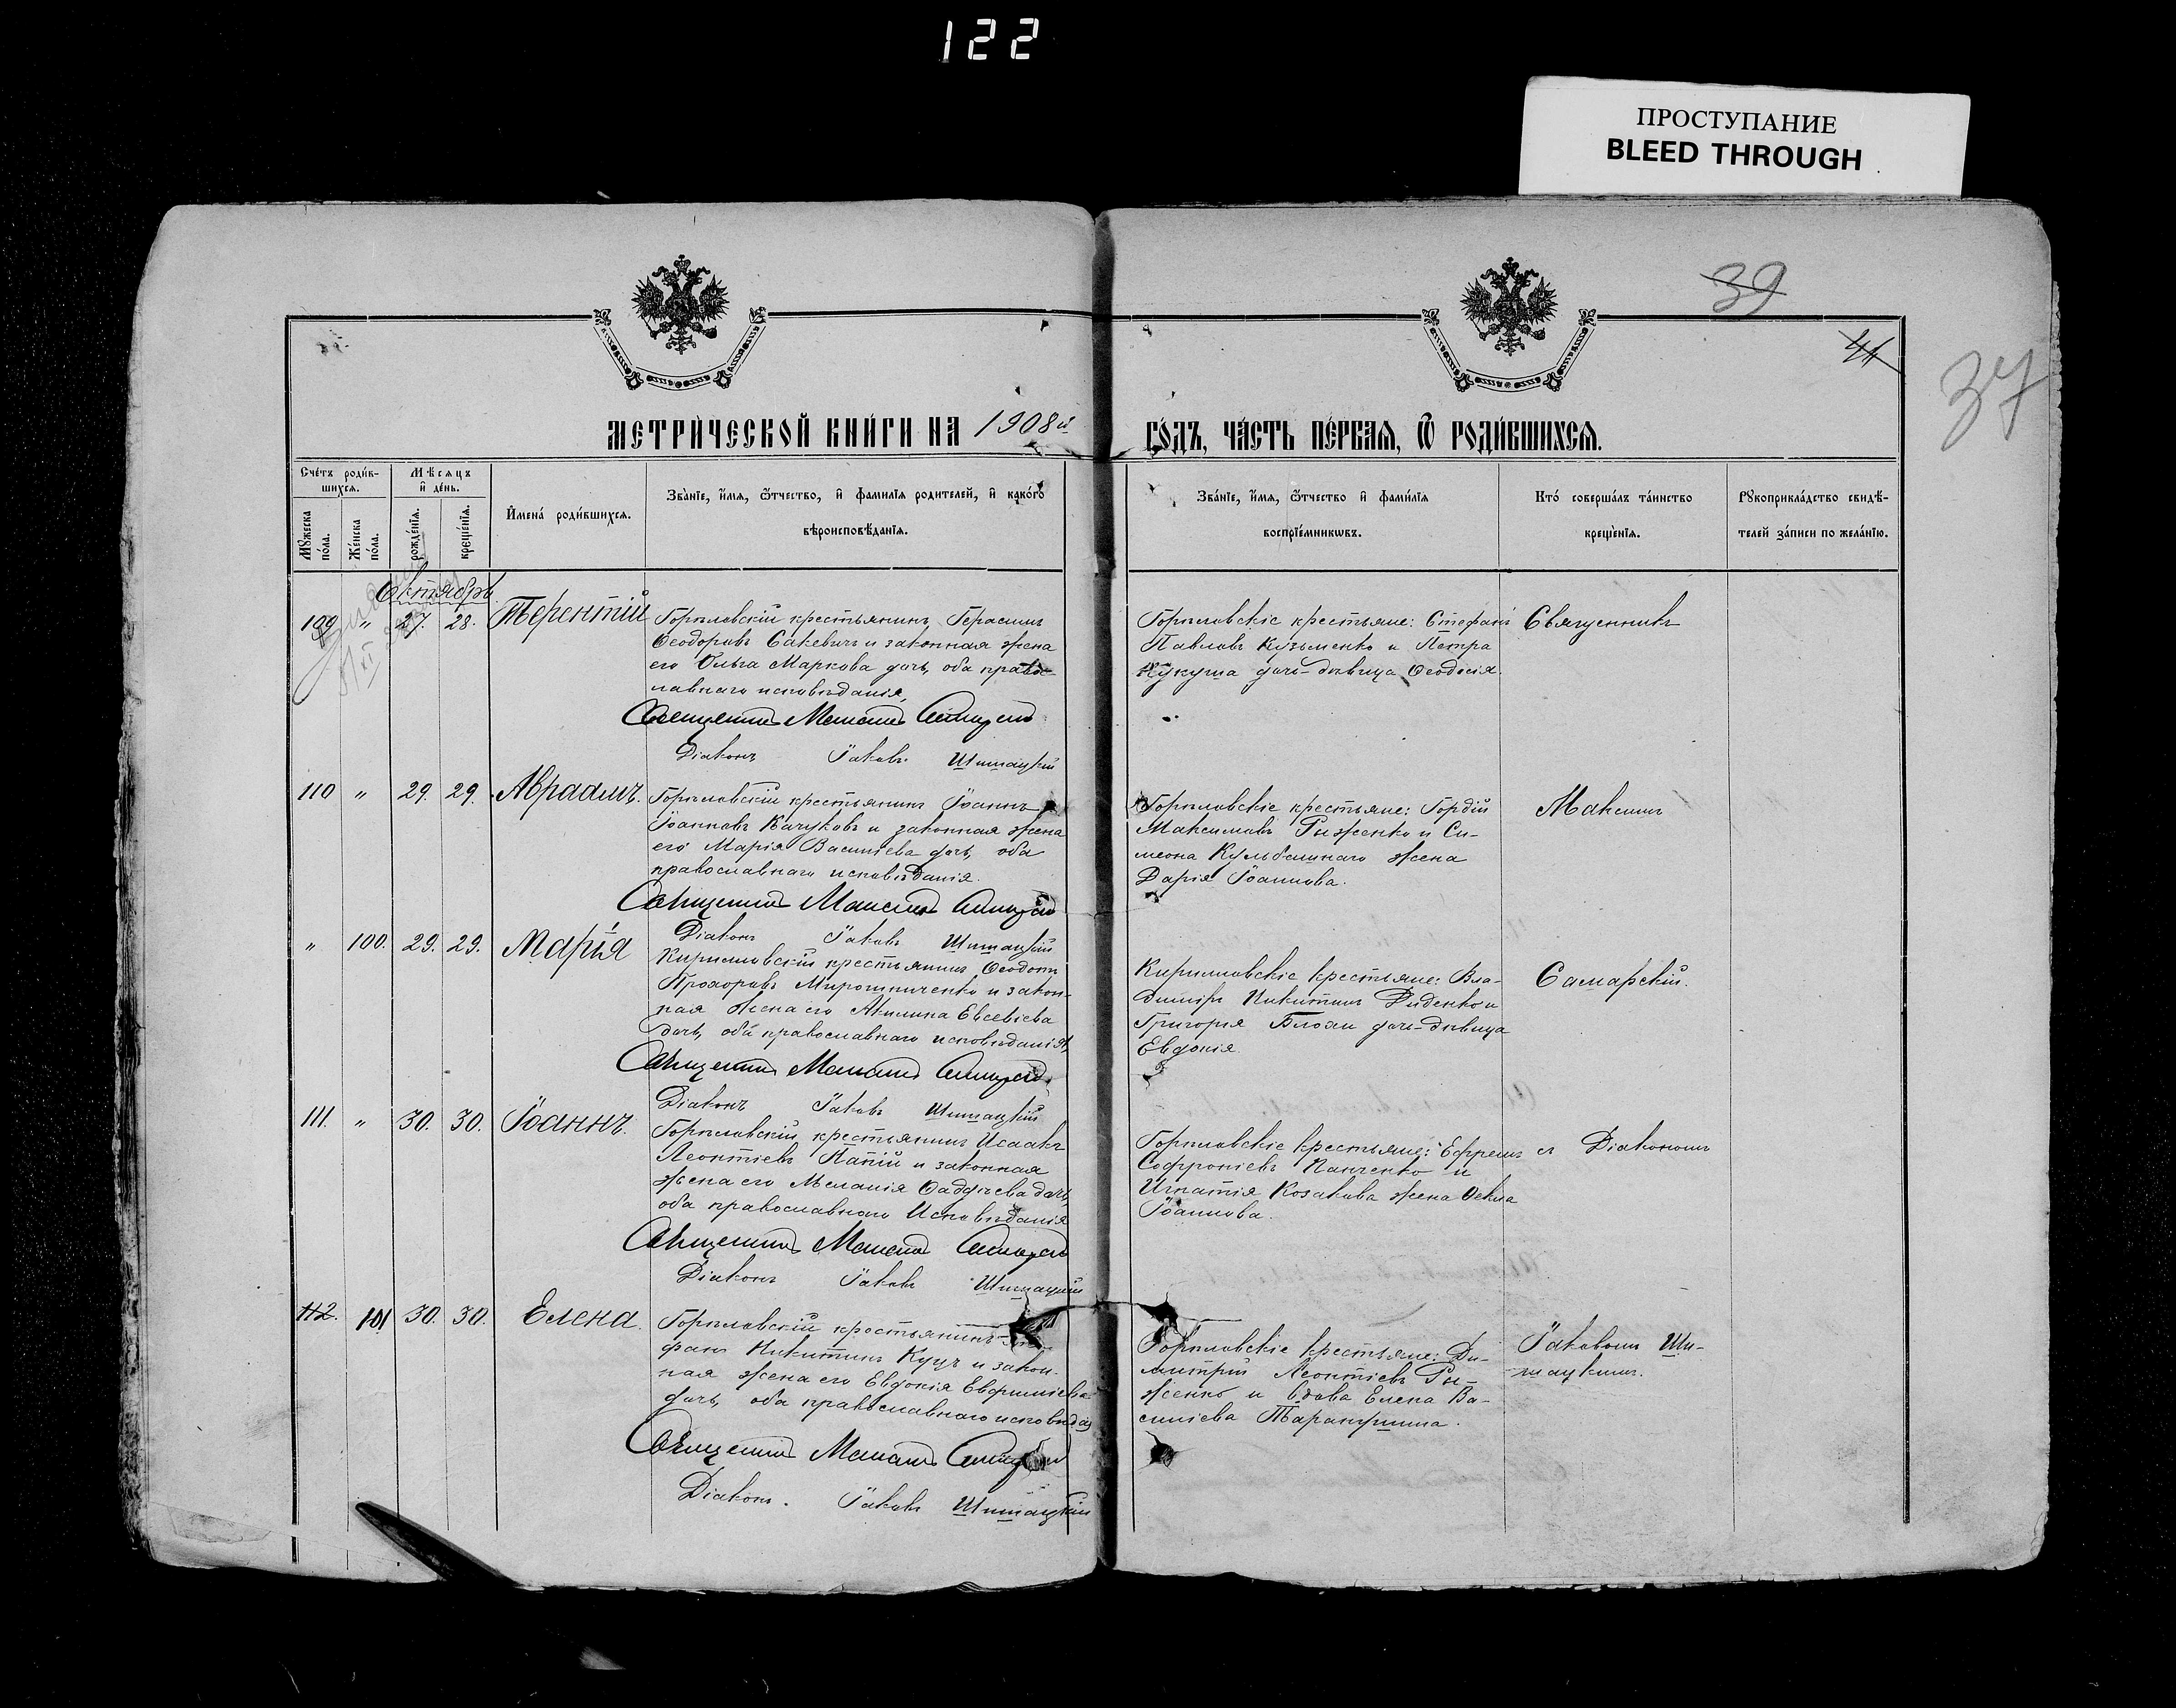 122
ПРОСТУПАНИЕ
BLEED THROUGH
39
41
37
МЕТРИЧЕСКОЙ КНИГИ НА 1908й
ГОДЪ, ЧАСТЬ ПЕРВАЯ, Ѡ РОДИВШИХСЯ.
Счетъ родив-
шихся.
Мѣсяцъ
и день.
Мужеска
пола.
Женска
пола.
рожденія.
крещенія.
Имена родившихся.
Званіе, имя, ѿчество, и фамилія родителей, и какого
вѣроисповѣданія.
Званіе, имя, ѿчество и фамилія
воспріемникѡвъ.
Кто совершалъ таинство
крещенія.
Рукоприкладство свидѣ-
телей записи по желанію.
Октябрь
109 " 27. 28. Терентій
Горыловскій крестьянинъ, Герасимъ
Ѳеодоровъ Сакевичъ и законная жена
его Ольга Маркова дочь, оба право-
славнаго исповѣданія,
Священникъ Максимъ Самарскій
Діаконъ Іаковъ Шишацкій
Горыловскіе крестьяне: Стефанъ
Павловъ Кузьменко и Петра
Кукуша дочь-дѣвица Ѳеодосія.
Священникъ
110 " 29. 29. Авраамъ.
Горыловскій крестьянинъ Іоаннъ
Іоанновъ Качуковъ и законная жена
его Марія Василіева дочь, оба
православнаго исповѣданія.
Священникъ Максимъ Самарскій
Діаконъ Іаковъ Шишацкій
Горыловскіе крестьяне: Гордій
Максимовъ Рыженко и Си-
меона Кульбашнаго жена
Дарія Іоаннова.
Максимъ
" 100. 29. 29. Марія
Кирилловскій крестьянинъ Ѳеодотъ
Прохоровъ Мирошниченко и закон-
ная жена его Акилина Евсевіева
дочь, оба православнаго исповѣданія,
Священникъ Максимъ Самарскій
Діаконъ Іаковъ Шишацкій
Кирилловскіе крестьяне: Вла-
диміръ Никитинъ Диденко и
Григорія дочь-дѣвица
Евдокія.
Самарскій.
111. " 30. 30. Іоаннъ.
Горыловскій крестьянинъ Исаакъ
Леонтіевъ Папій и законная
жена его Меланія Ѳаддѣева дочь,
оба православнаго Исповѣданія
Священникъ Максимъ Самарскій
Діаконъ Іаковъ Шишацкій
Горыловскіе крестьяне: Ефремъ
Софроніевъ Панченко и
Игнатія Козакова жена Ѳекла
Іоаннова.
съ Діакономъ
112. 101 30. 30. Елена.
Горыловскій крестьянинъ
фанъ Никитинъ Куцъ и закон-
ная жена его Евдокія Евфиміева
дочь, оба православнаго исповѣда
Священникъ Максимъ Самарскій
Діаконъ. Іаковъ Шишацкій
Горыловскіе крестьяне: Ди-
митрій Леонтіевъ Ры-
женко и вдова Елена Ва-
силіева
Іаковомъ Ши-
шацкимъ.